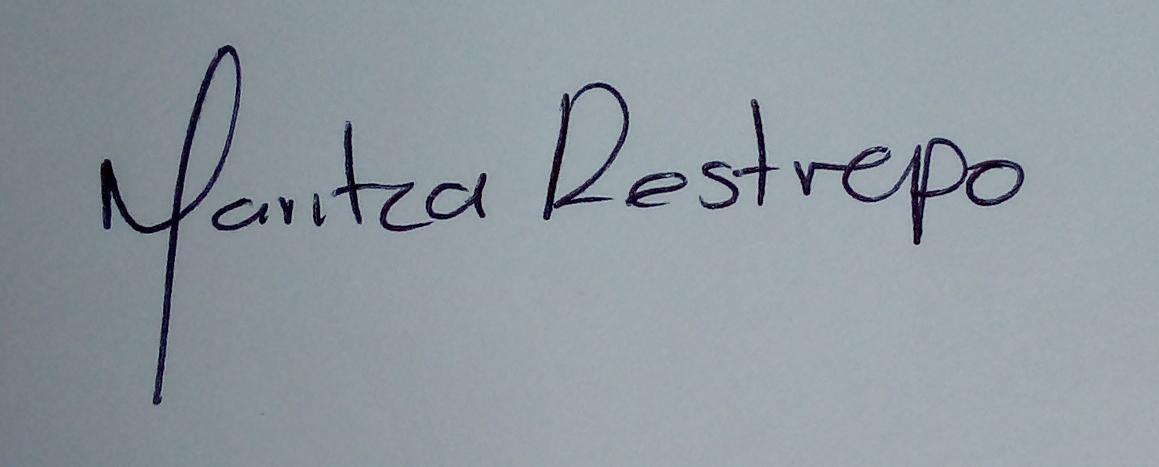 Maritza Restrepo